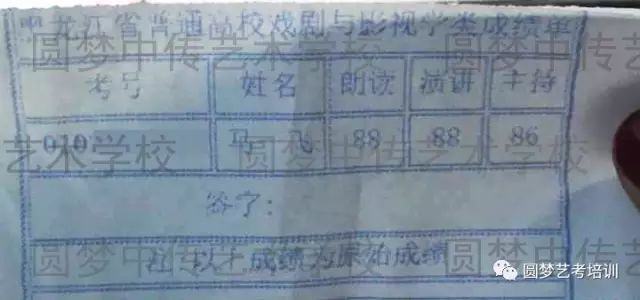 黑龙江省普通高校戏剧与影视学类成绩单
圆梦中传艺术学校
考号 姓名 朗读 演讲 主持
010 马 飞 88 88 86
艺术学校 圆梦中传艺术学校
签字:
注:以上成绩为原始成绩
圆梦中传艺术学校 圆梦中传艺
圆梦艺考培训